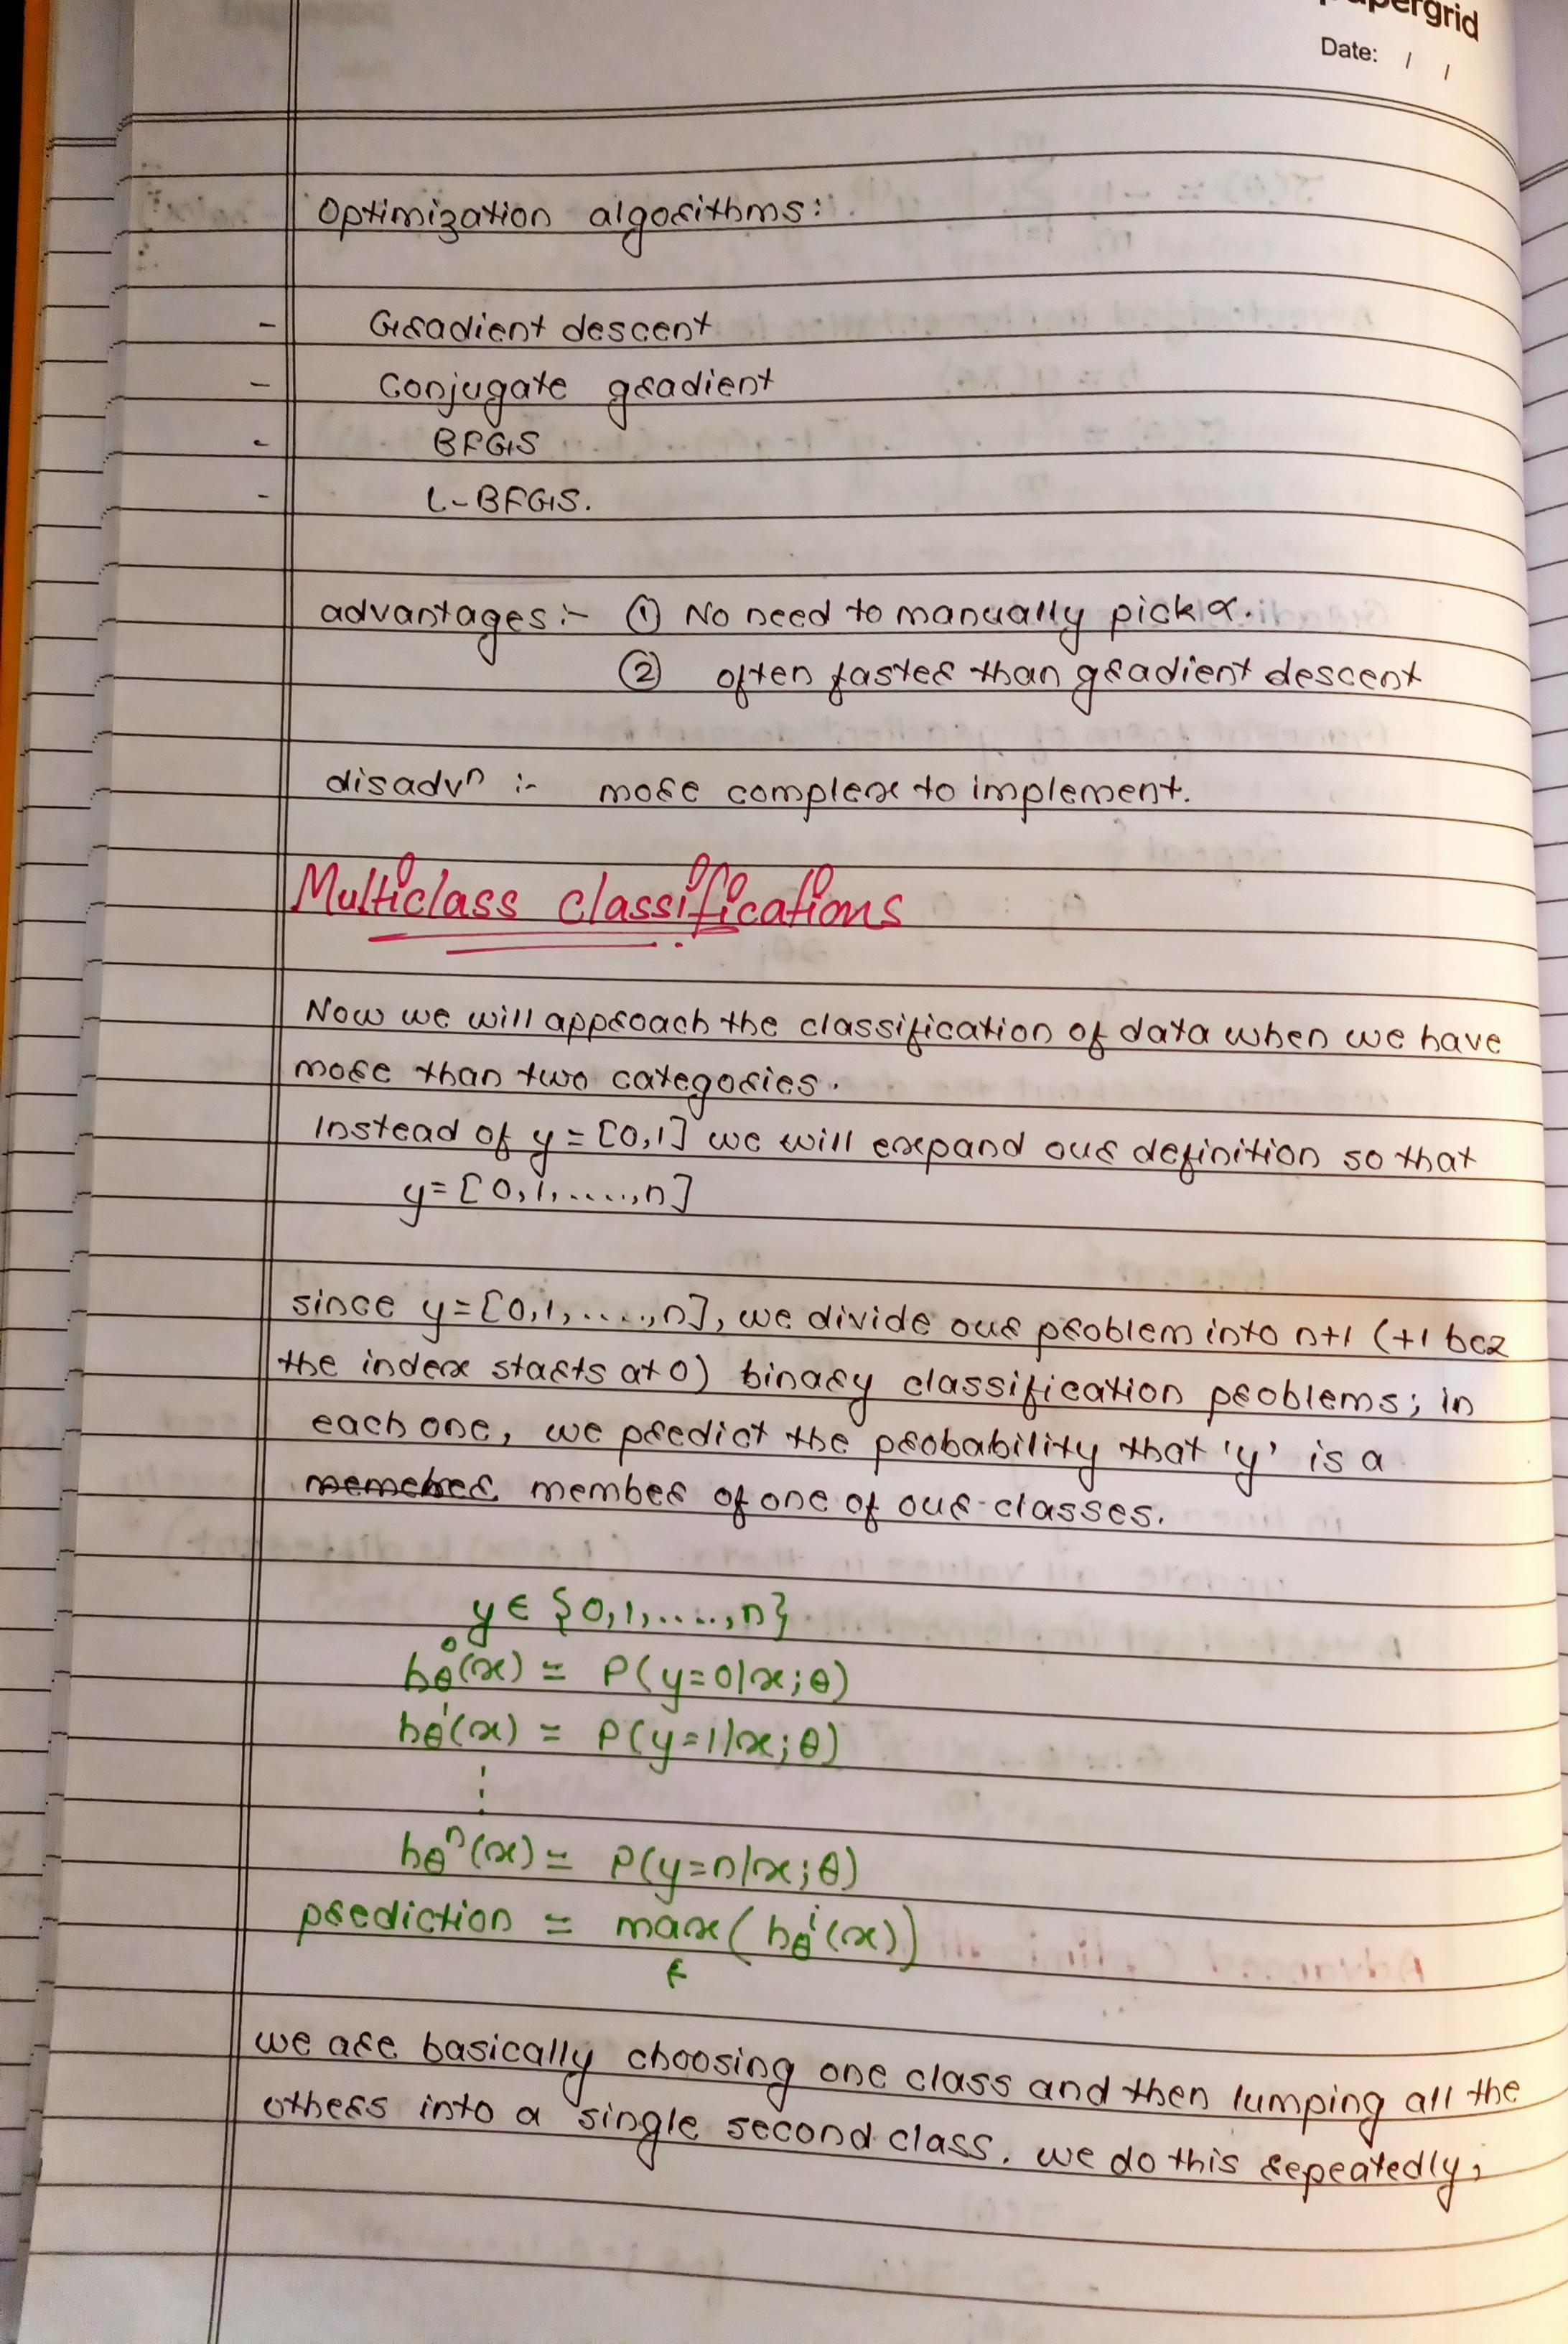 papergrid
Date: / /
Optimization algorithms:
- Gradient descent
- Conjugate gradient
- BFGS
- L-BFGS.
advantages :- ① No need to manually pick α.
② often faster than gradient descent
disadvⁿ :- more complex to implement.
Multiclass classifications
Now we will approach the classification of data when we have
more than two categories.
Instead of y = [0,1] we will expand our definition so that
y = [0, 1, ....., n]
since y = [0, 1, ....., n], we divide our problem into n+1 (+1 bcz
the index starts at 0) binary classification problems; in
each one, we predict the probability that 'y' is a
member of one of our classes.
y ∈ {0, 1, ....., n}
hθ⁰(x) = P(y=0|x;θ)
hθ¹(x) = P(y=1|x;θ)
⋮
hθⁿ(x) = P(y=n|x;θ)
prediction = max(hθⁱ(x))
we are basically choosing one class and then lumping all the
others into a single second class. we do this repeatedly,